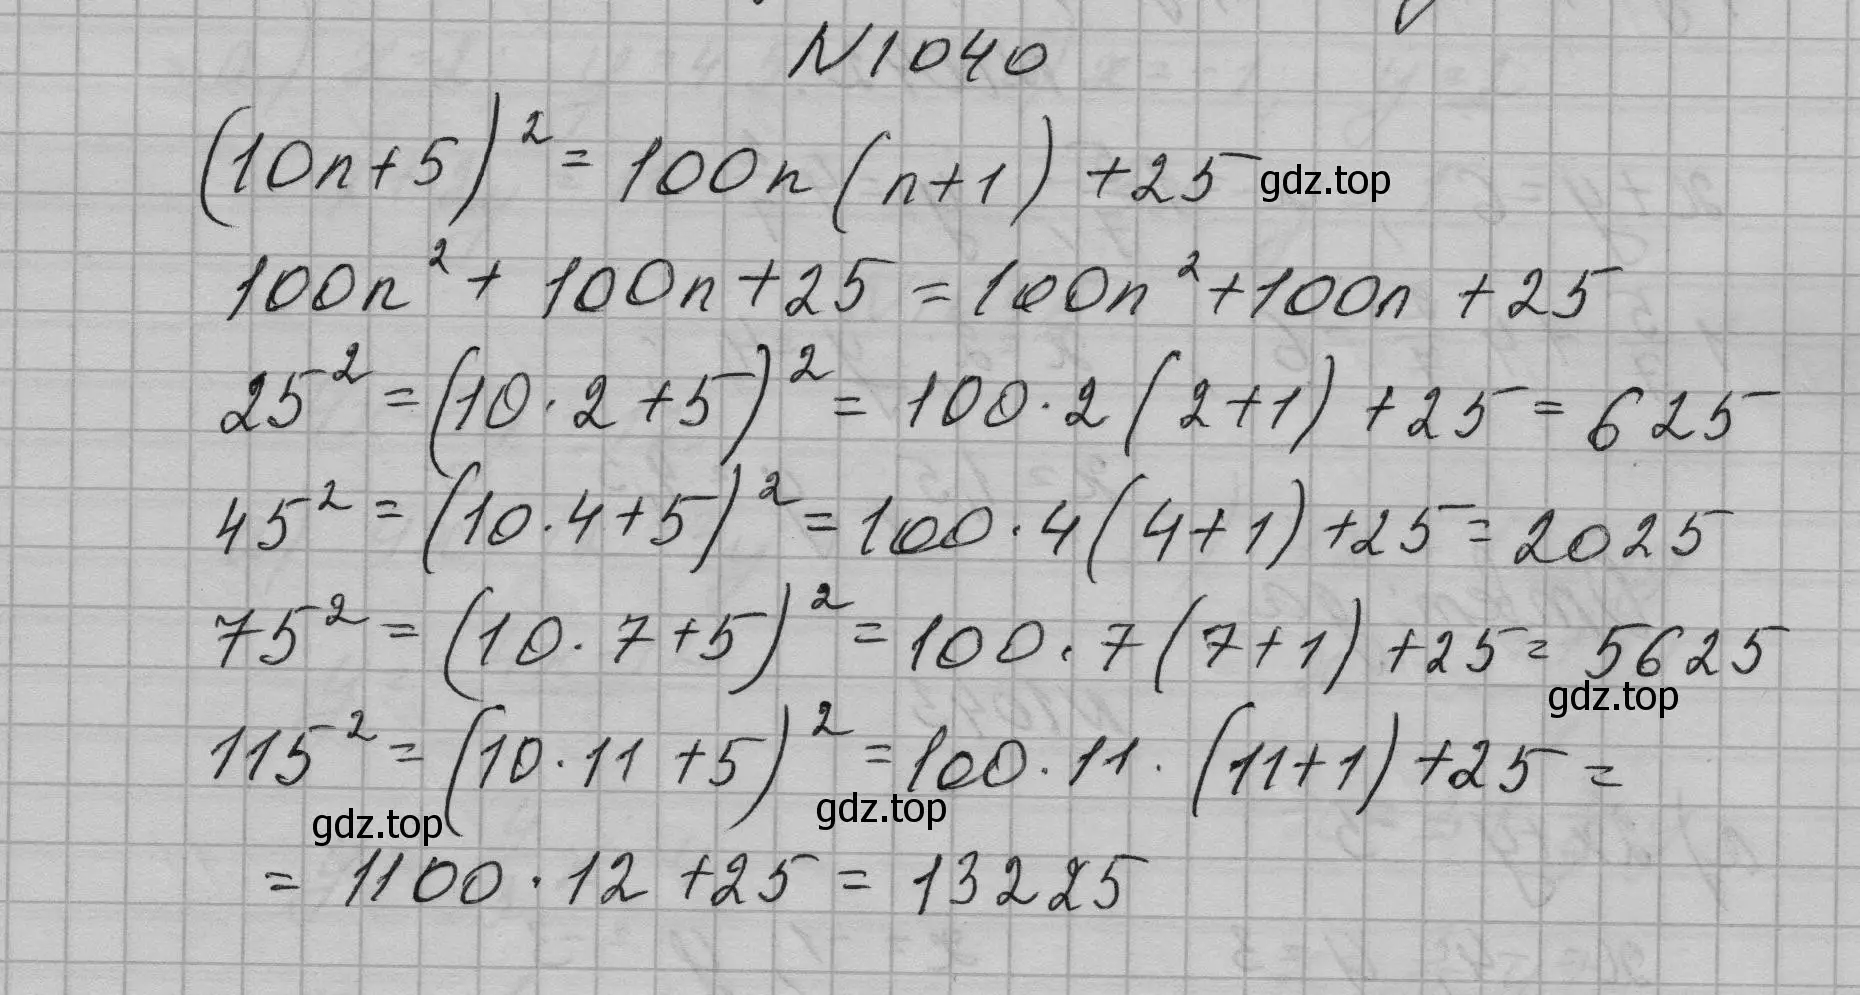 N1040
(10n+5)² = 100n(n+1) +25 gdz.top
100n² + 100n+25 = 100n²+100n +25
25² = (10·2+5)² = 100·2(2+1) +25 = 625
45² = (10·4+5)² = 100·4(4+1) +25 = 2025
75² = (10·7+5)² = 100·7(7+1) +25 = 5625
gdz.top
115² = (10·11+5)² = 100·11·(11+1)+25 =
gdz.top gdz.top
= 1100·12+25 = 13225